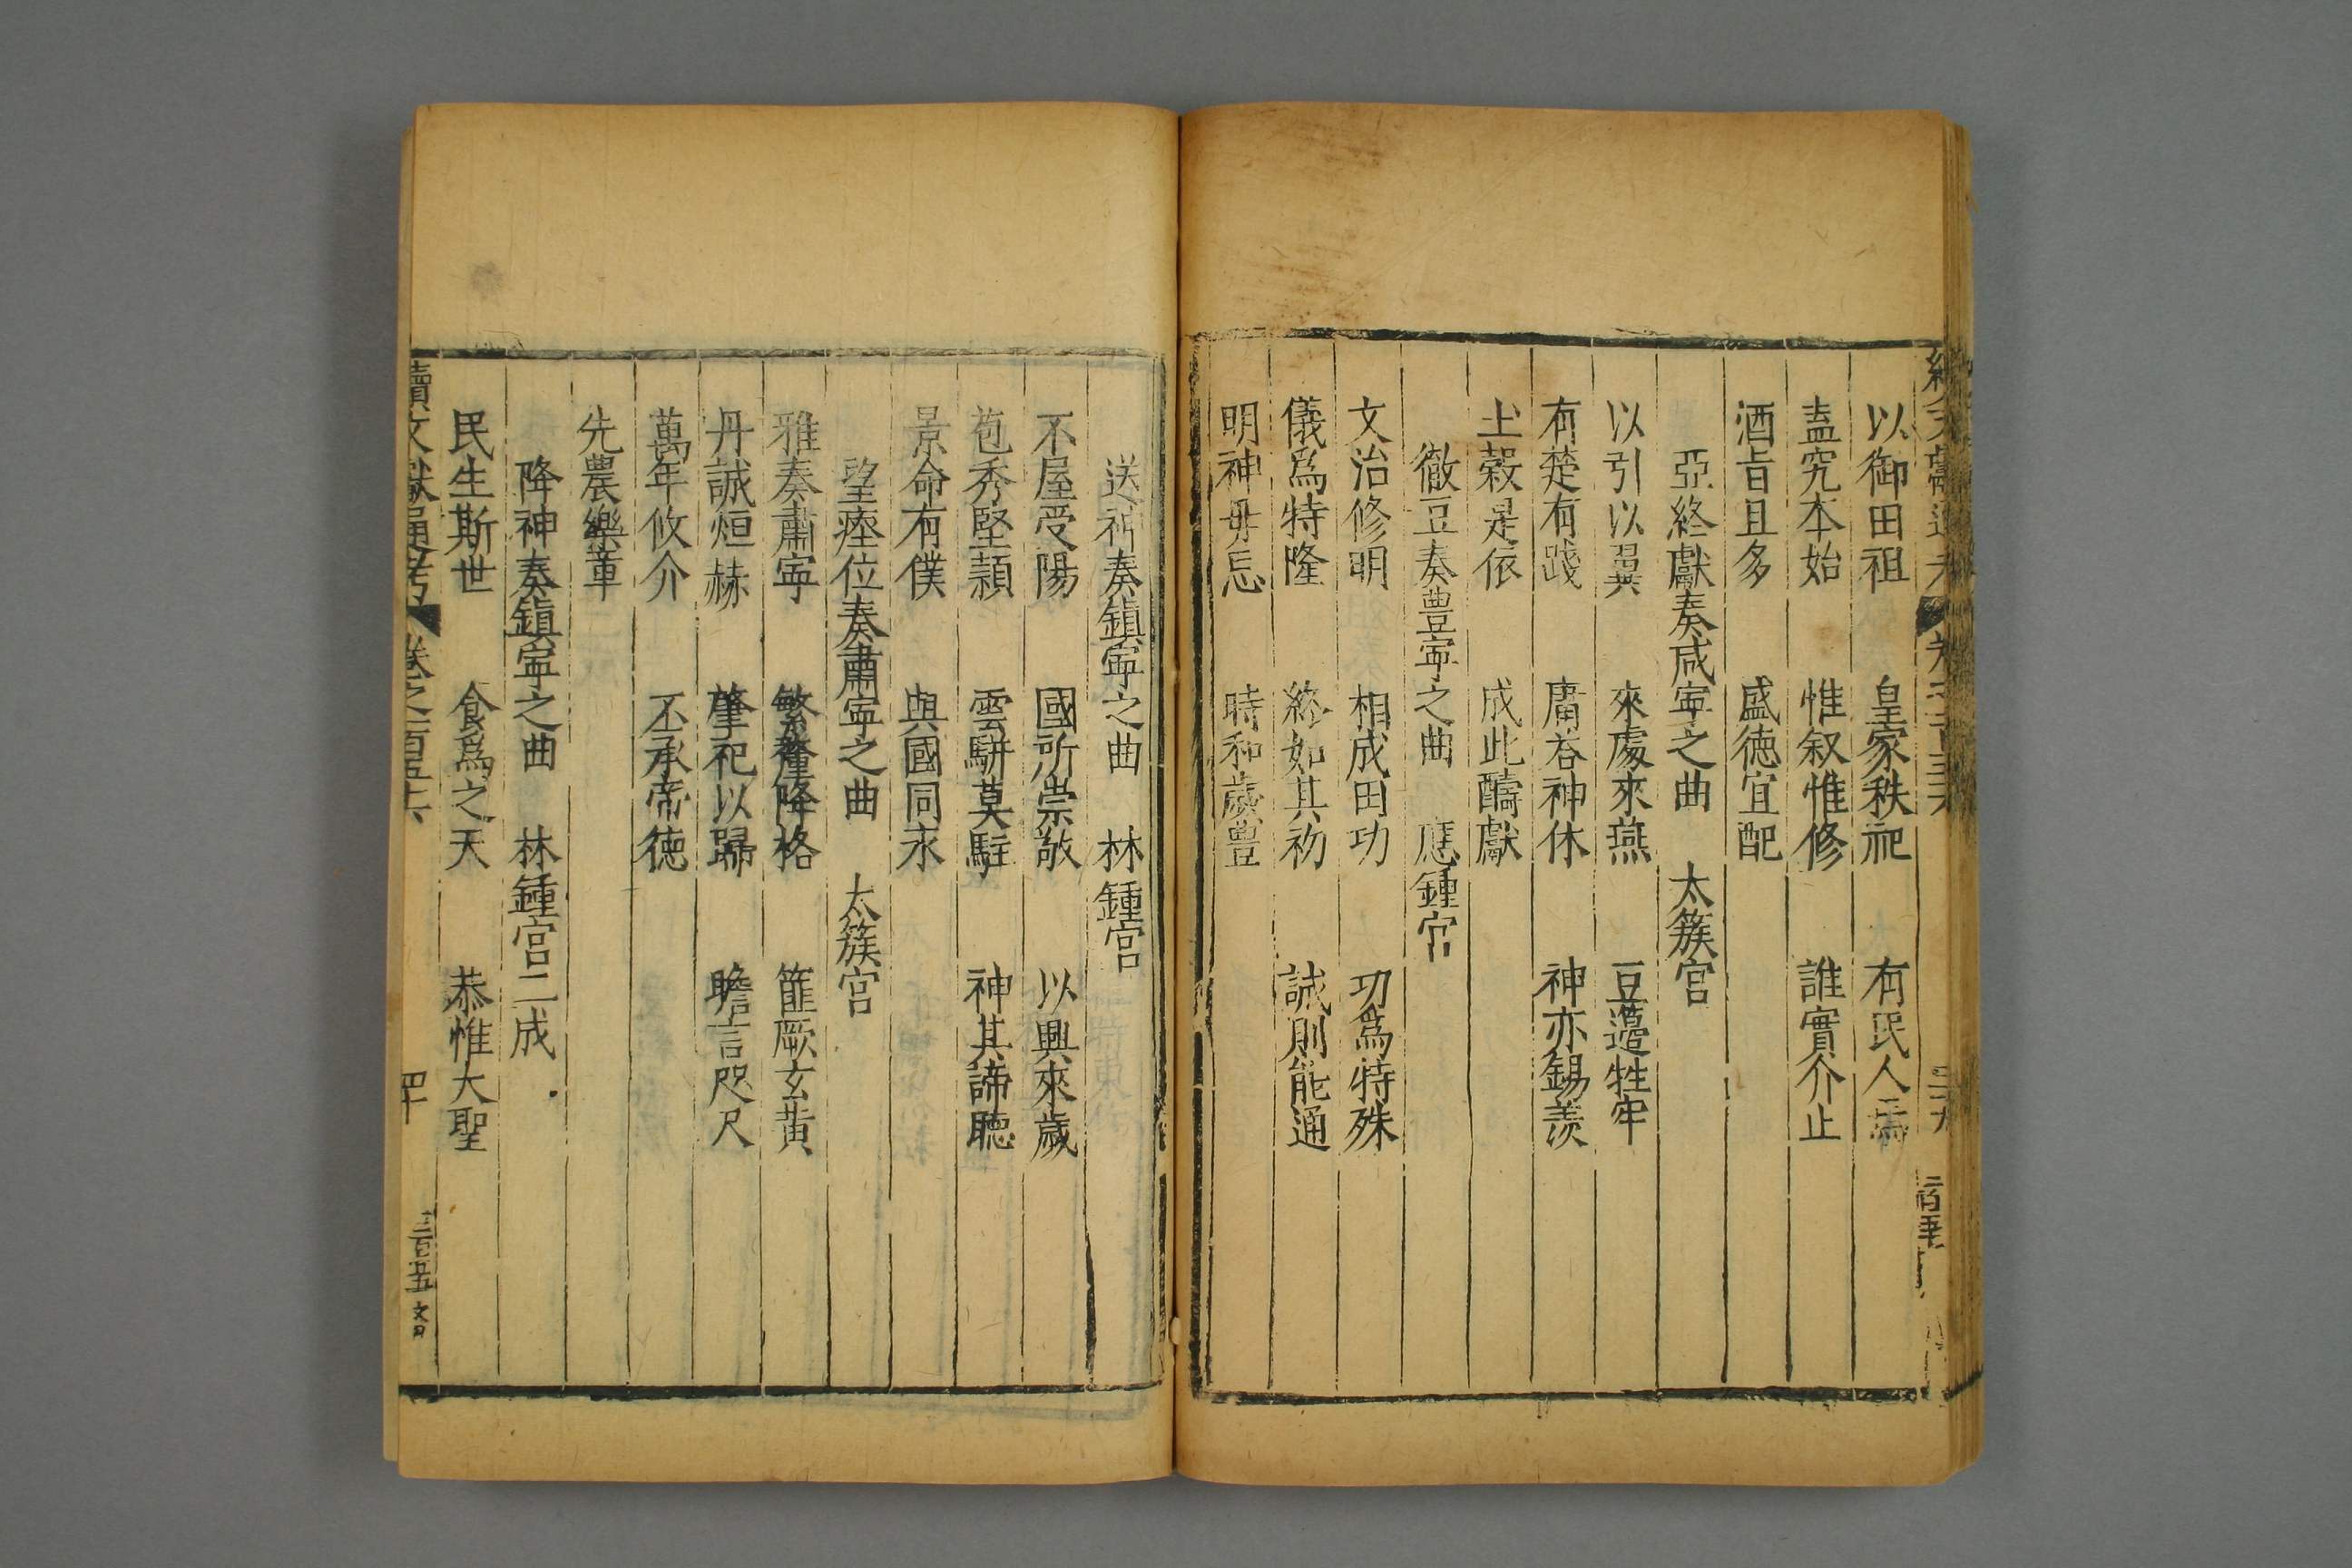 以御田祖　皇家秩祀　有民人焉
盍究本始　惟叙惟修　誰實介止
酒旨且多　盛徳宜配
亞終獻奏咸寧之曲　太簇宮
以引以翼　來處來燕　豆籩牲牢
有楚有踐　庸荅神休　神亦錫羨
土穀是依　成此醻獻
徹豆奏豊寧之曲　應鍾宮
文治修明　相成田功　功爲特殊
儀爲特隆　終如其初　誠則能通
明神毋忘　時和歲豊
送神奏鎮寧之曲　林鍾宮
不屋受陽　國所崇敬　以興來歲
苞秀堅穎　雲駢莫駐　神其諦聽
景命有僕　與國同永
望瘞位奏肅寧之曲　太簇宮
雅奏肅寧　繁釐降格　篚厥玄黃
丹誠烜赫　肇祀以歸　瞻言咫尺
萬年攸介　丕承帝徳
先農樂章
降神奏鎮寧之曲　林鍾宮二成
民生斯世　食爲之天　恭惟大聖
續文獻通考　卷之一百五十六　四十　三百五